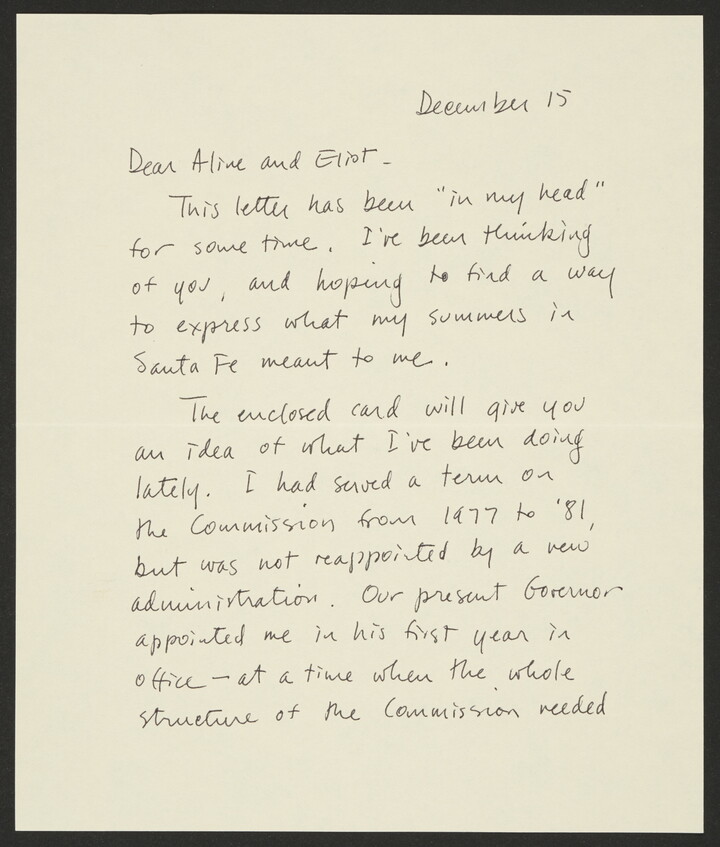 December 15
Dear Aline and Eliot -
This letter has been "in my head"
for some time. I've been thinking
of you, and hoping to find a way
to express what my summers in
Santa Fe meant to me.
The enclosed card will give you
an idea of what I've been doing
lately. I had served a term on
the Commission from 1977 to '81,
but was not reappointed by a new
administration. Our present Governor
appointed me in his first year in
office — at a time when the whole
structure of the Commission needed